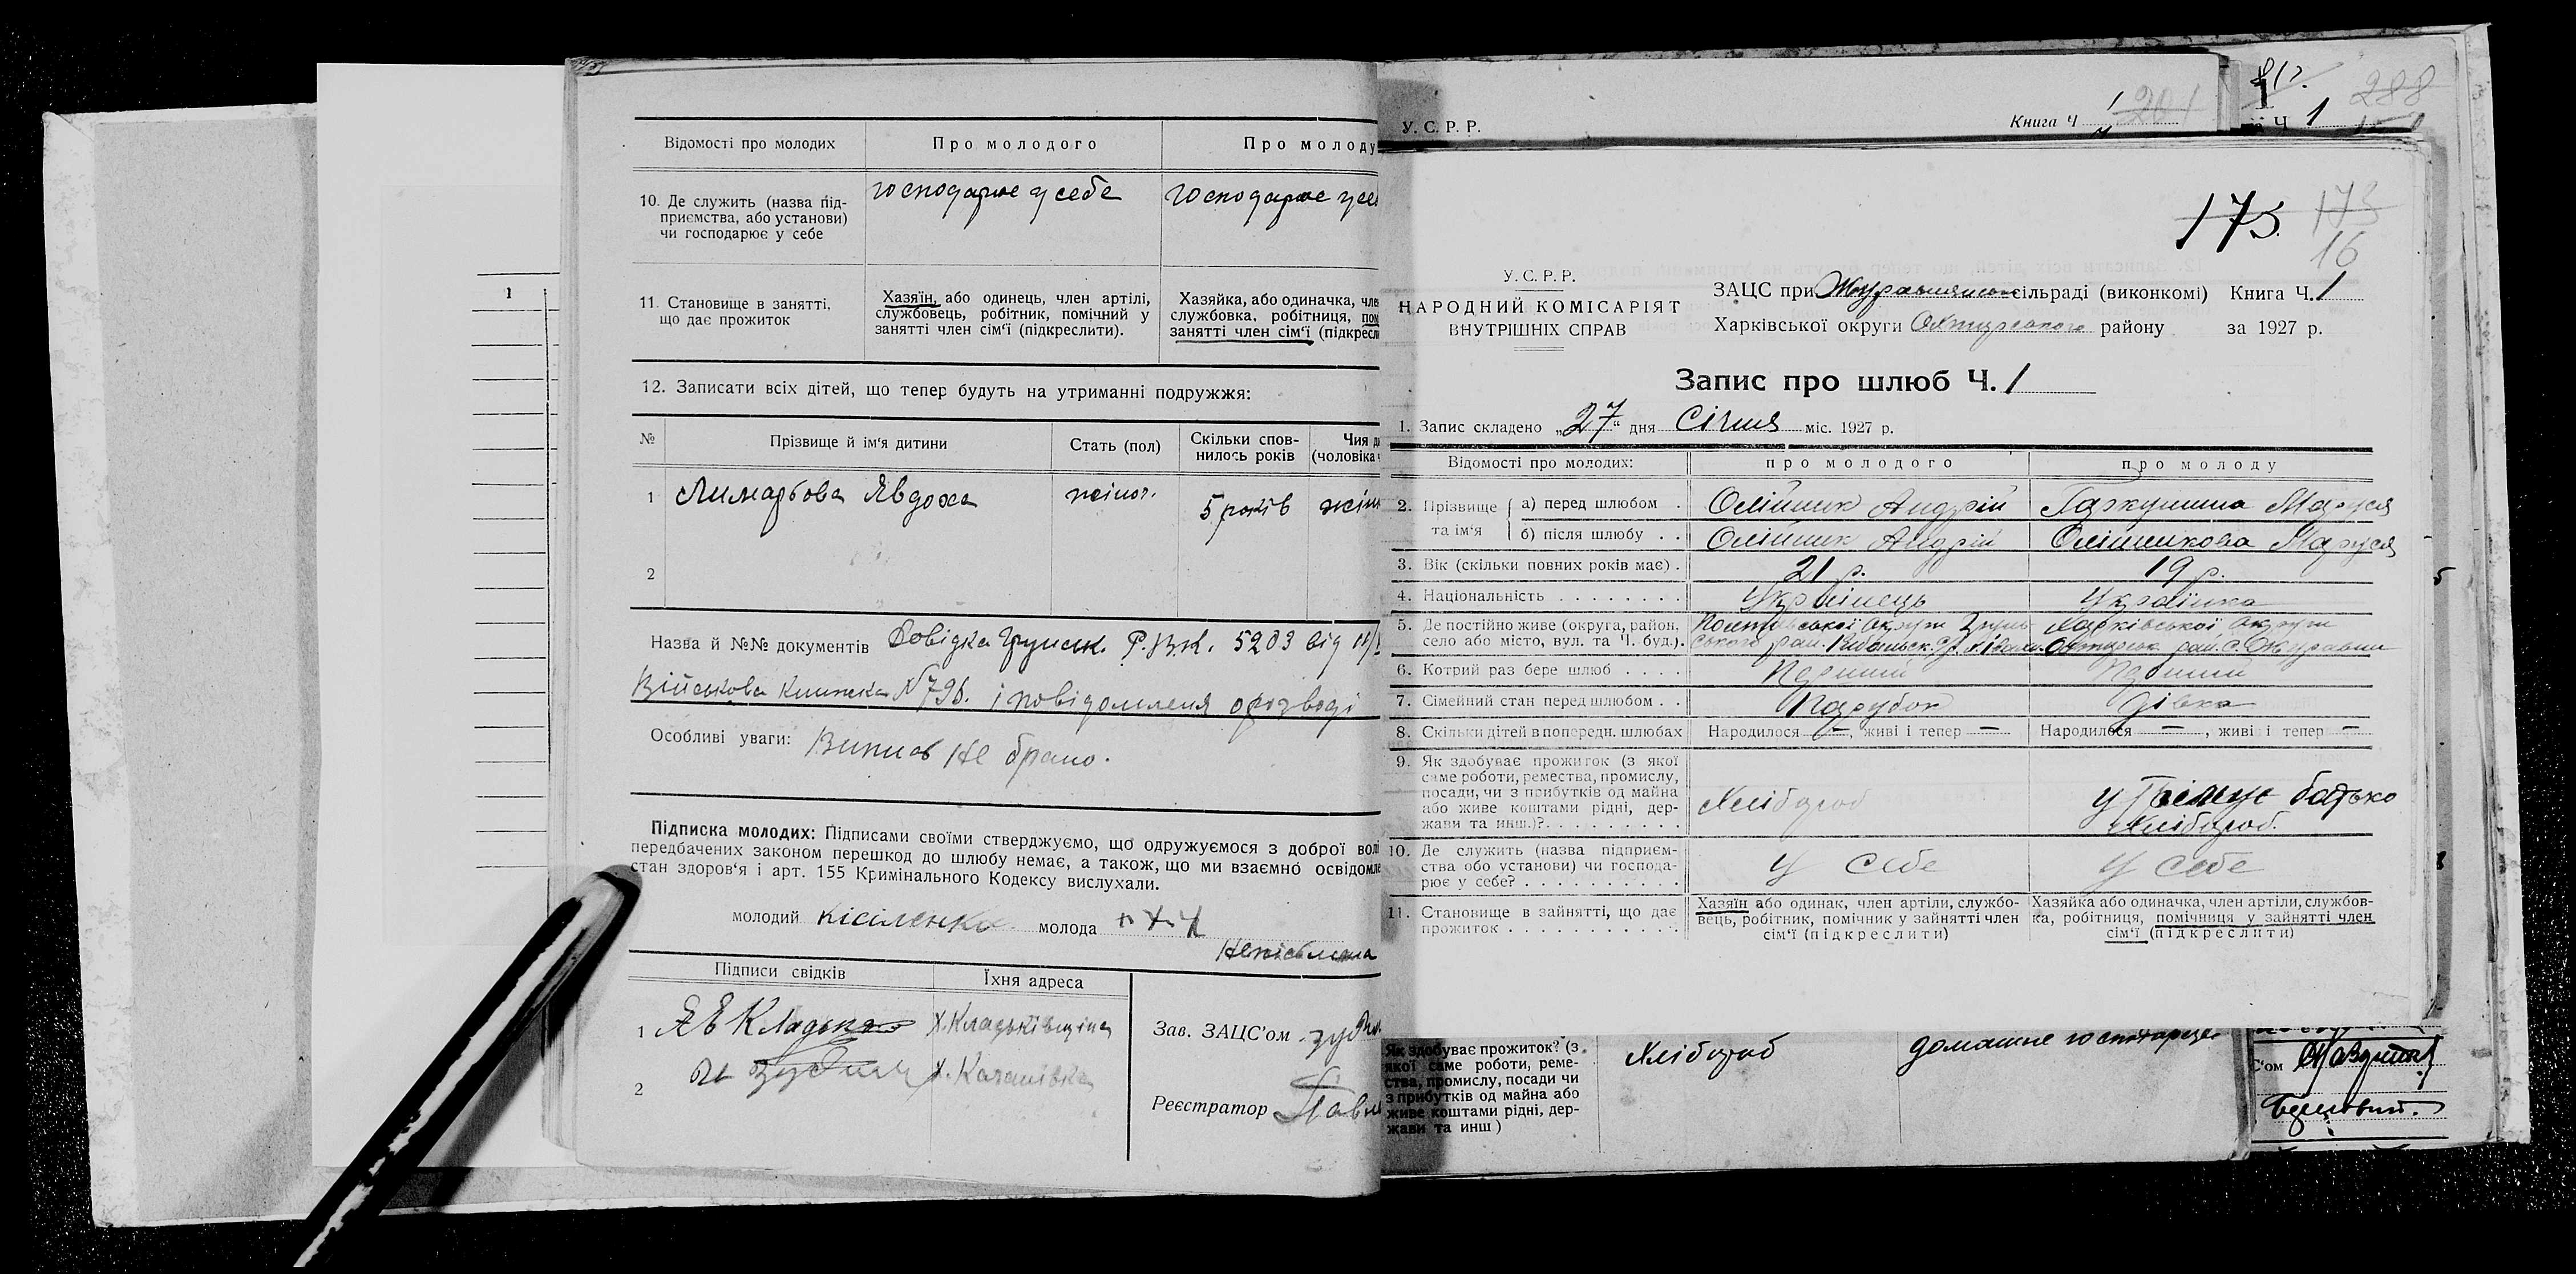 Відомості про молодих
Про молодого
Про молоду
10. Де служить (назва під-
приємства, або установи)
чи господарює у себе
господарює у себе
господарює у се
11. Становище в занятті,
що дає прожиток
Хазяїн, або одинець, член артілі,
службовець, робітник, помічний у
занятті член сім'ї (підкреслити).
Хазяйка, або одиначка, чле
службовка, робітниця, пом
занятті член сім'ї (підкресл
12. Записати всіх дітей, що тепер будуть на утриманні подружжя:
№
Прізвище й ім'я дитини
Стать (пол)
Скільки спов-
нилось років
Чия д
(чоловіка ч
1
Явдоха
жіноч.
5 років
жін
2
Назва й №№ документів Довідка Грунськ. Р.В.К. 5203 від
Військова Книжка № 796. і повідомленя о розводі
Особливі уваги: Випись не брано.
Підписка молодих: Підписами своїми стверджуємо, що одружуємося з доброї волі
передбачених законом перешкод до шлюбу немає, а також, що ми взаємно освідомле
стан здоров'я і арт. 155 Кримінального Кодексу вислухали.
молодий Кісіленко молода + + +
Неписьмена
Підписи свідків
Їхня адреса
1
Х. Кладьківщина
2
Х. Качанівка
Зав. ЗАЦС'ом
Реєстратор
1
У. С. Р. Р.
Книга Ч
201
Ч 1
288
175
173
16
У.С.Р.Р.
НАРОДНИЙ КОМІСАРІЯТ
ВНУТРІШНІХ СПРАВ
ЗАЦС при Журавлянськ сільраді (виконкомі) Книга Ч. 1
Харківської округи Охтирського району за 1927 р.
Запис про шлюб Ч. 1
1. Запис складено „27" дня Січня міс. 1927 р.
Відомості про молодих:
про молодого
про молоду
2. Прізвище та ім'я
а) перед шлюбом
Олійник Андрій
Гаркушина Маруся
б) після шлюбу
Олійник Андрій
Олійникова Маруся
3. Вік (скільки повних років має)
21 р.
19 р.
4. Національність
Українець
Українка
5. Де постійно живе (округа, район,
село або місто, вул. та Ч. буд.).
Полтавської округи Грунь-
ського рай.
Харківської округи
Охтирськ рай. с. Журавни
6. Котрий раз бере шлюб
Перший
Перший
7. Сімейний стан перед шлюбом
Парубок
Дівка
8. Скільки дітей в попередн. шлюбах
Народилося —, живі і тепер —
Народилося —, живі і тепер —
9. Як здобуває прожиток (з якої
саме роботи, ремества, промислу,
посади, чи з прибутків од майна
або живе коштами рідні, дер-
жави та инш.)?
Хлібороб
батько
Хлібороб.
10. Де служить (назва підприєм-
ства обо установи) чи господа-
рює у себе?
У себе
У себе
11. Становище в зайнятті, що дає
прожиток
Хазяїн або одинак, член артіли, службо-
вець, робітник, помічник у зайнятті член
сім'ї (підкреслити)
Хазяйка або одиначка, член артіли, службов-
ка, робітниця, помічниця у зайнятті член
сім'ї (підкреслити)
Як здобуває прожиток? (з
якої саме роботи, реме-
ства, промислу, посади чи
з прибутків од майна або
живе коштами рідні, дер-
жави та инш)
Хлібороб
домашнє
С'ом